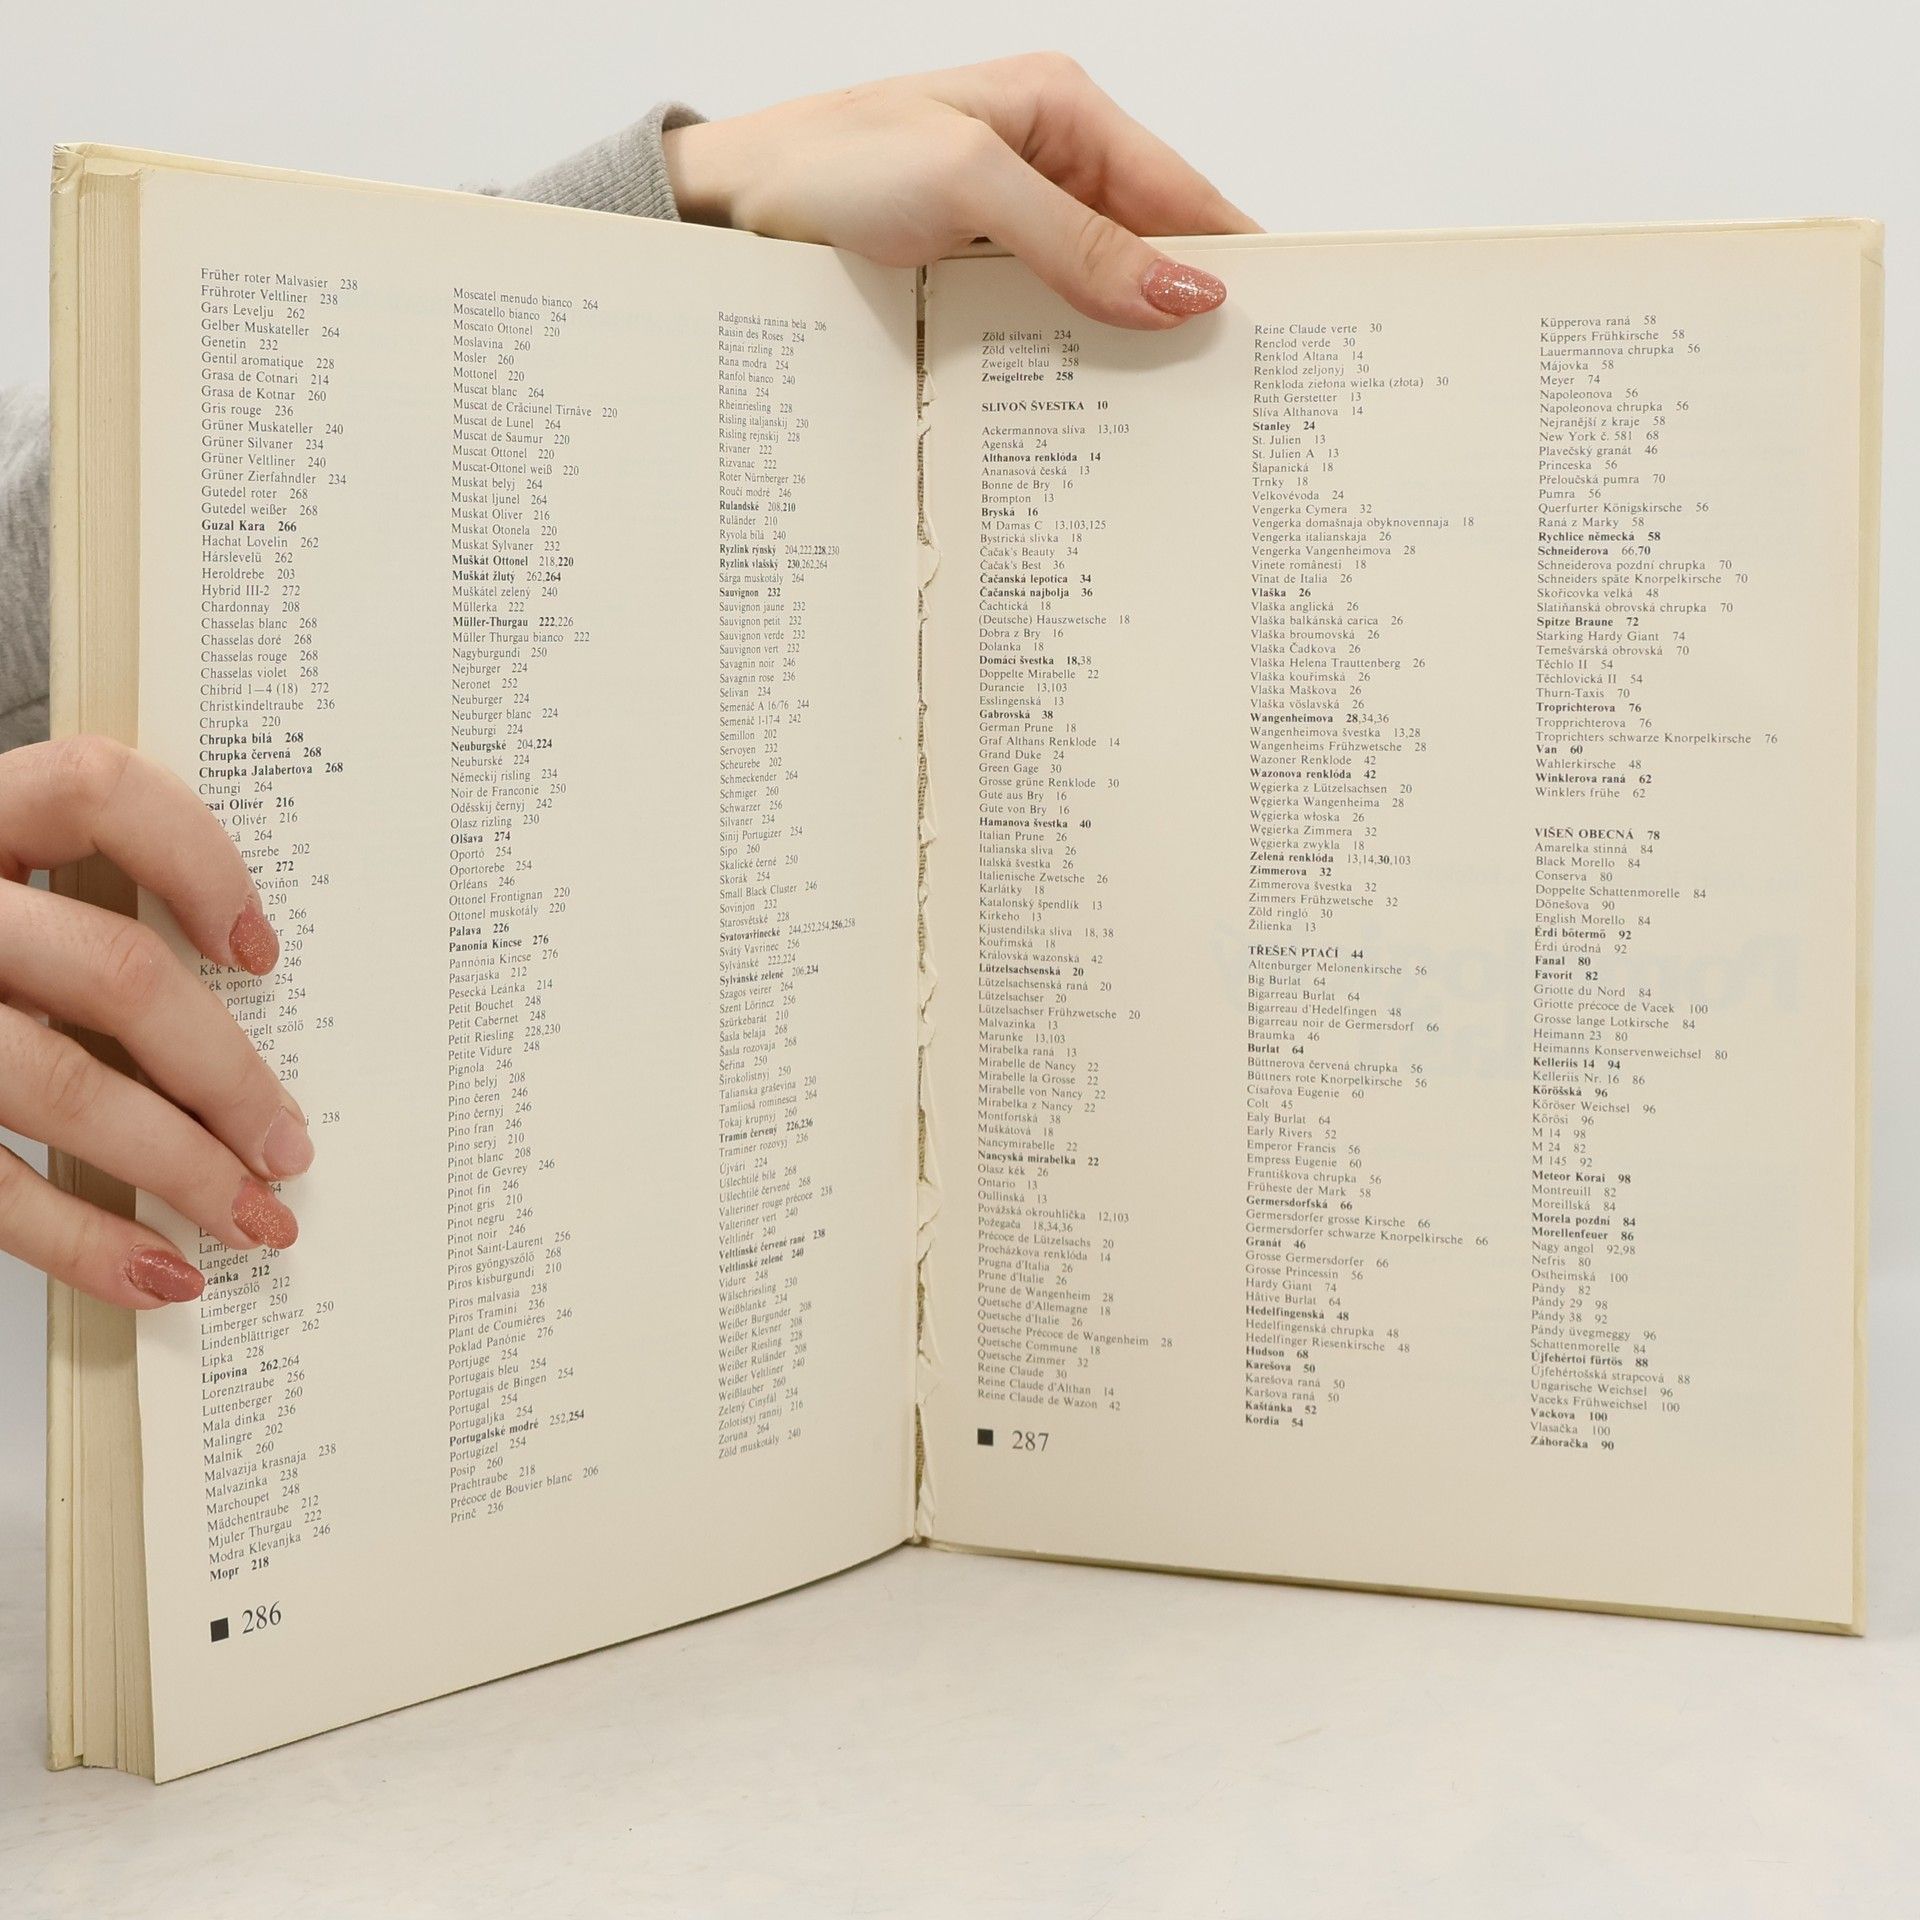 Früher roter Malvasier 238
Frühroter Veltliner 238
Gars Levelju 262
Gelber Muskateller 264
Genetin 232
Gentil aromatique 228
Grasa de Cotnari 214
Grasa de Kotnar 260
Gris rouge 236
Grüner Muskateller 240
Grüner Silvaner 234
Grüner Veltliner 240
Grüner Zierfahndler 234
Gutedel roter 268
Gutedel weißer 268
Guzal Kara 266
Hachat Lovelin 262
Hárslevelü 262
Heroldrebe 203
Hybrid III-2 272
Chardonnay 208
Chasselas blanc 268
Chasselas doré 268
Chasselas rouge 268
Chasselas violet 268
Chibrid 1—4 (18) 272
Christkindeltraube 236
Chrupka 220
Chrupka bílá 268
Chrupka červená 268
Chrupka Jalabertova 268
Chungi 264
Olivér 216
Olivér 216
264
202
272
Soviňon 248
250
266
264
250
246
Kék oportó 254
portugizi 254
246
szölö 258
262
246
230
238
Langedet 246
Leánka 212
Leányszölö 212
Limberger 250
Limberger schwarz 250
Lindenblättriger 262
Lipka 228
Lipovina 262,264
Lorenztraube 256
Luttenberger 260
Mala dinka 236
Malingre 202
Malnik 260
Malvazija krasnaja 238
Malvazinka 238
Marchoupet 248
Mädchentraube 212
Mjuler Thurgau 222
Modra Klevanjka 246
Mopr 218
■ 286
Moscatel menudo bianco 264
Moscatello bianco 264
Moscato Ottonel 220
Moslavina 260
Mosler 260
Mottonel 220
Muscat blanc 264
Muscat de Crăciunel Tirnăve 220
Muscat de Lunel 264
Muscat de Saumur 220
Muscat Ottonel 220
Muscat-Ottonel weiß 220
Muskat belyj 264
Muskat ljunel 264
Muskat Oliver 216
Muskat Otonela 220
Muskat Sylvaner 232
Muškát Ottonel 218,220
Muškát žlutý 262,264
Muškátel zelený 240
Müllerka 222
Müller-Thurgau 222,226
Müller Thurgau bianco 222
Nagyburgundi 250
Nejburger 224
Neronet 252
Neuburger 224
Neuburger blanc 224
Neuburgi 224
Neuburgské 204,224
Neuburské 224
Německij risling 234
Noir de Franconie 250
Oděsskij černyj 242
Olasz rizling 230
Olšava 274
Oportó 254
Oportorebe 254
Orléans 246
Ottonel Frontignan 220
Ottonel muskotály 220
Palava 226
Panonia Kincse 276
Pannónia Kincse 276
Pasarjaska 212
Pesecká Leánka 214
Petit Bouchet 248
Petit Cabernet 248
Petit Riesling 228,230
Petite Vidure 248
Pignola 246
Pino belyj 208
Pino čeren 246
Pino černyj 246
Pino fran 246
Pino seryj 210
Pinot blanc 208
Pinot de Gevrey 246
Pinot fin 246
Pinot gris 210
Pinot negru 246
Pinot noir 246
Pinot Saint-Laurent 256
Piros gyöngyszölö 268
Piros kisburgundi 210
Piros malvasia 238
Piros Tramini 236
Plant de Coumières 246
Poklad Panónie 276
Portjuge 254
Portugais bleu 254
Portugais de Bingen 254
Portugal 254
Portugaljka 254
Portugalské modré 252,254
Portugízel 254
Posip 260
Prachtraube 218
Précoce de Bouvier blanc 206
Prinč 236
Radgonská ranina bela 206
Raisin des Roses 254
Rajnai rizling 228
Rana modra 254
Ranfol bianco 240
Ranina 254
Rheinriesling 228
Risling italjanskij 230
Risling rejnskij 228
Rivaner 222
Rizvanac 222
Roter Nürnberger 236
Roučí modré 246
Rulandské 208,210
Ruländer 210
Ryvola bílá 240
Ryzlink rýnský 204,222,228,230
Ryzlink vlašský 230,262,264
Sárga muskotály 264
Sauvignon 232
Sauvignon jaune 232
Sauvignon petit 232
Sauvignon verde 232
Sauvignon vert 232
Savagnin noir 246
Savagnin rose 236
Selivan 234
Semenáč A 16/76 244
Semenáč 1-17-4 242
Semillon 202
Servoyen 232
Scheurebe 202
Schmeckender 264
Schmiger 260
Schwarzer 256
Silvaner 234
Sinij Portugizer 254
Sipo 260
Skalické černé 250
Skorák 254
Small Black Cluster 246
Sovinjon 232
Starosvětské 228
Svatovavřinecké 244,252,254,256,258
Svätý Vavrinec 256
Sylvánské 222,224
Sylvánské zelené 206,234
Szagos veirer 264
Szent Lörincz 256
Szürkebarát 210
Šasla belaja 268
Šasla rozovaja 268
Šeřina 250
Širokolistnyj 250
Talianska graševina 230
Tamliošá rominesca 264
Tokaj krupnyj 260
Tramín červený 226,236
Traminer rozovyj 236
Újvári 224
Ušlechtilé bílé 268
Ušlechtilé červené 268
Valteriner rouge précoce 238
Valteriner vert 240
Veltlinér 240
Veltlínské červené rané 238
Veltlínské zelené 240
Vidure 248
Wälschriesling 230
Weißblanke 234
Weißer Burgunder 208
Weißer Klevner 208
Weißer Riesling 228
Weißer Ruländer 208
Weißer Veltliner 240
Weißlauber 260
Zelený Cinyfál 234
Zolotistyj rannij 216
Zoruna 264
Zöld muskotály 240
Zöld silvani 234
Zöld veltelini 240
Zweigelt blau 258
Zweigeltrebe 258
SLIVOŇ ŠVESTKA 10
Ackermannova slíva 13,103
Agenská 24
Althanova renklóda 14
Ananasová česká 13
Bonne de Bry 16
Brompton 13
Bryská 16
M Damas C 13,103,125
Bystrická slivka 18
Čačak's Beauty 34
Čačak's Best 36
Čačanská lepotica 34
Čačanská najbolja 36
Čachtická 18
(Deutsche) Hauszwetsche 18
Dobra z Bry 16
Dolanka 18
Domácí švestka 18,38
Doppelte Mirabelle 22
Durancie 13,103
Esslingenská 13
Gabrovská 38
German Prune 18
Graf Althans Renklode 14
Grand Duke 24
Green Gage 30
Grosse grüne Renklode 30
Gute aus Bry 16
Gute von Bry 16
Hamanova švestka 40
Italian Prune 26
Italianska sliva 26
Italská švestka 26
Italienische Zwetsche 26
Karlátky 18
Katalonský špendlík 13
Kirkeho 13
Kjustendilska sliva 18, 38
Kouřimská 18
Královská wazonská 42
Lützelsachsenská 20
Lützelsachsenská raná 20
Lützelsachser 20
Lützelsachser Frühzwetsche 20
Malvazinka 13
Marunke 13,103
Mirabelka raná 13
Mirabelle de Nancy 22
Mirabelle la Grosse 22
Mirabelle von Nancy 22
Mirabelka z Nancy 22
Montfortská 38
Muškátová 18
Nancymirabelle 22
Nancyská mirabelka 22
Olasz kék 26
Ontario 13
Oullinská 13
Povážská okrouhlička 12,103
Požegača 18,34,36
Précoce de Lützelsachs 20
Procházkova renklóda 14
Prugna d'Italia 26
Prune d'Italie 26
Prune de Wangenheim 28
Quetsche d'Allemagne 18
Quetsche d'Italie 26
Quetsche Précoce de Wangenheim 28
Quetsche Commune 18
Quetsche Zimmer 32
Reine Claude 30
Reine Claude d'Althan 14
Reine Claude de Wazon 42
■ 287
Reine Claude verte 30
Renclod verde 30
Renklod Altana 14
Renklod zeljonyj 30
Renkloda zielona wielka (złota) 30
Ruth Gerstetter 13
Slíva Althanova 14
Stanley 24
St. Julien 13
St. Julien A 13
Šlapanická 18
Trnky 18
Velkovévoda 24
Vengerka Cymera 32
Vengerka domašnaja obyknovennaja 18
Vengerka italianskaja 26
Vengerka Vangenheimova 28
Vinete românesti 18
Vinat de Italia 26
Vlaška 26
Vlaška anglická 26
Vlaška balkánská carica 26
Vlaška broumovská 26
Vlaška Čadkova 26
Vlaška Helena Trauttenberg 26
Vlaška kouřimská 26
Vlaška Maškova 26
Vlaška vöslavská 26
Wangenheimova 28,34,36
Wangenheimova švestka 13,28
Wangenheims Frühzwetsche 28
Wazoner Renklode 42
Wazonova renklóda 42
Węgierka z Lützelsachsen 20
Węgierka Wangenheima 28
Węgierka włoska 26
Węgierka Zimmera 32
Węgierka zwykla 18
Zelená renklóda 13,14,30,103
Zimmerova 32
Zimmerova švestka 32
Zimmers Frühzwetsche 32
Zöld ringló 30
Žilienka 13
TŘEŠEŇ PTAČÍ 44
Altenburger Melonenkirsche 56
Big Burlat 64
Bigarreau Burlat 64
Bigarreau d'Hedelfingen 48
Bigarreau noir de Germersdorf 66
Braumka 46
Burlat 64
Büttnerova červená chrupka 56
Büttners rote Knorpelkirsche 56
Císařova Eugenie 60
Colt 45
Ealy Burlat 64
Early Rivers 52
Emperor Francis 56
Empress Eugenie 60
Františkova chrupka 56
Früheste der Mark 58
Germersdorfská 66
Germersdorfer grosse Kirsche 66
Germersdorfer schwarze Knorpelkirsche 66
Granát 46
Grosse Germersdorfer 66
Grosse Princessin 56
Hardy Giant 74
Hâtive Burlat 64
Hedelfingenská 48
Hedelfingenská chrupka 48
Hedelfinger Riesenkirsche 48
Hudson 68
Karešova 50
Karešova raná 50
Karšova raná 50
Kaštánka 52
Kordia 54
Küpperova raná 58
Küppers Frühkirsche 58
Lauermannova chrupka 56
Májovka 58
Meyer 74
Napoleonova 56
Napoleonova chrupka 56
Nejranější z kraje 58
New York č. 581 68
Plavečský granát 46
Princeska 56
Přeloučská pumra 70
Pumra 56
Querfurter Königskirsche 56
Raná z Marky 58
Rychlice německá 58
Schneiderova 66,70
Schneiderova pozdní chrupka 70
Schneiders späte Knorpelkirsche 70
Skořicovka velká 48
Slatiňanská obrovská chrupka 70
Spitze Braune 72
Starking Hardy Giant 74
Temešvárská obrovská 70
Těchlo II 54
Těchlovická II 54
Thurn-Taxis 70
Troprichterova 76
Tropprichterova 76
Troprichters schwarze Knorpelkirsche 76
Van 60
Wahlerkirsche 48
Winklerova raná 62
Winklers frühe 62
VIŠEŇ OBECNÁ 78
Amarelka stinná 84
Black Morello 84
Conserva 80
Doppelte Schattenmorelle 84
Dönešova 90
English Morello 84
Érdi bötermö 92
Érdi úrodná 92
Fanal 80
Favorit 82
Griotte du Nord 84
Griotte précoce de Vacek 100
Grosse lange Lotkirsche 84
Heimann 23 80
Heimanns Konservenweichsel 80
Kelleriis 14 94
Kelleriis Nr. 16 86
Köröšská 96
Köröser Weichsel 96
Körösi 96
M 14 98
M 24 82
M 145 92
Meteor Korai 98
Montreuill 82
Moreillská 84
Morela pozdní 84
Morellenfeuer 86
Nagy angol 92,98
Nefris 80
Ostheimská 100
Pándy 82
Pándy 29 98
Pándy 38 92
Pándy üvegmeggy 96
Schattenmorelle 84
Újfehértoi fürtös 88
Újfehértošská strapcová 88
Ungarische Weichsel 96
Vaceks Frühweichsel 100
Vackova 100
Vlasačka 100
Záhoračka 90